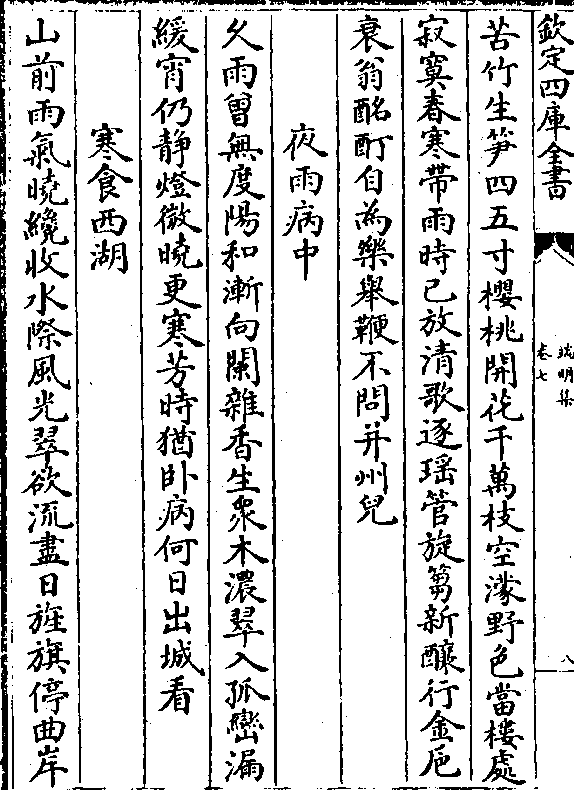 欽定四庫全書
端明集
卷七
八
苦竹生笋四五寸櫻桃開花千萬枝空濛野色當樓處
寂寞春寒帶雨時已放清歌逐瑶管旋篘新釀行金巵
衰翁酩酊自為樂舉鞭不問并州兒
夜雨病中
久雨曾無度陽和漸向闌雜香生衆木濃翠入孤巒漏
緩宵仍静燈微曉更寒芳時猶卧病何日出城看
寒食西湖
山前雨氣曉纔收水際風光翠欲流盡日旌旗停曲岸